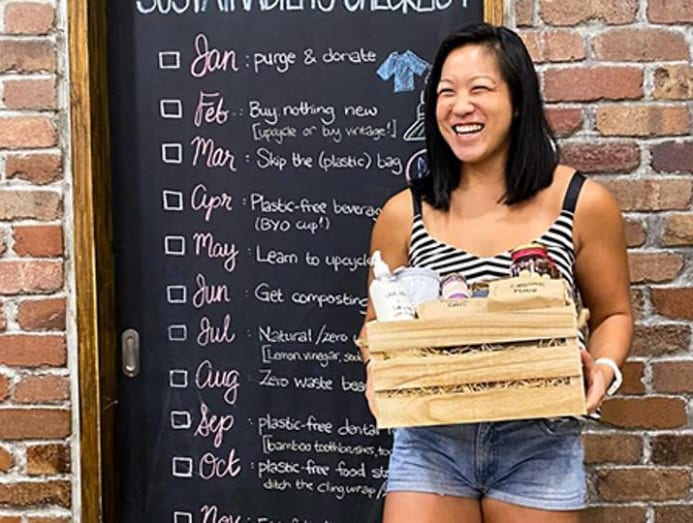 SUSTAINABLE
CHECKLIST
Jan : purge & donate
Feb : Buy nothing new
[upcycle or buy vintage!]
Mar : Skip the (plastic) bag
Apr : Plastic-free
(BYO cup!)
May : Learn to
Jun : Get composting
Jul : Natural/zero
[Lemon, vinegar,
Aug : Zero waste
Sep : plastic-free dental
[bamboo toothbrushes,
Oct : plastic-free food
ditch the cling wrap/
Nov :